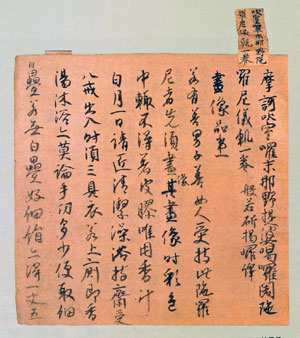 摩訶吠室囉末那野提婆喝囉闍陀
羅尼儀軌一卷 般若斫羯囉譯
畫像品第一
若有善男子善女人受持此陀羅
尼者先須畫其畫像時彩色
中輒不得著皮膠唯用香汁
白月一日請近清潔澡浴持齋受
八戒出入時須三具衣若上廁即香
湯沐浴亦莫論手功多少便取細
疊若無白疊好細絹亦得一丈五